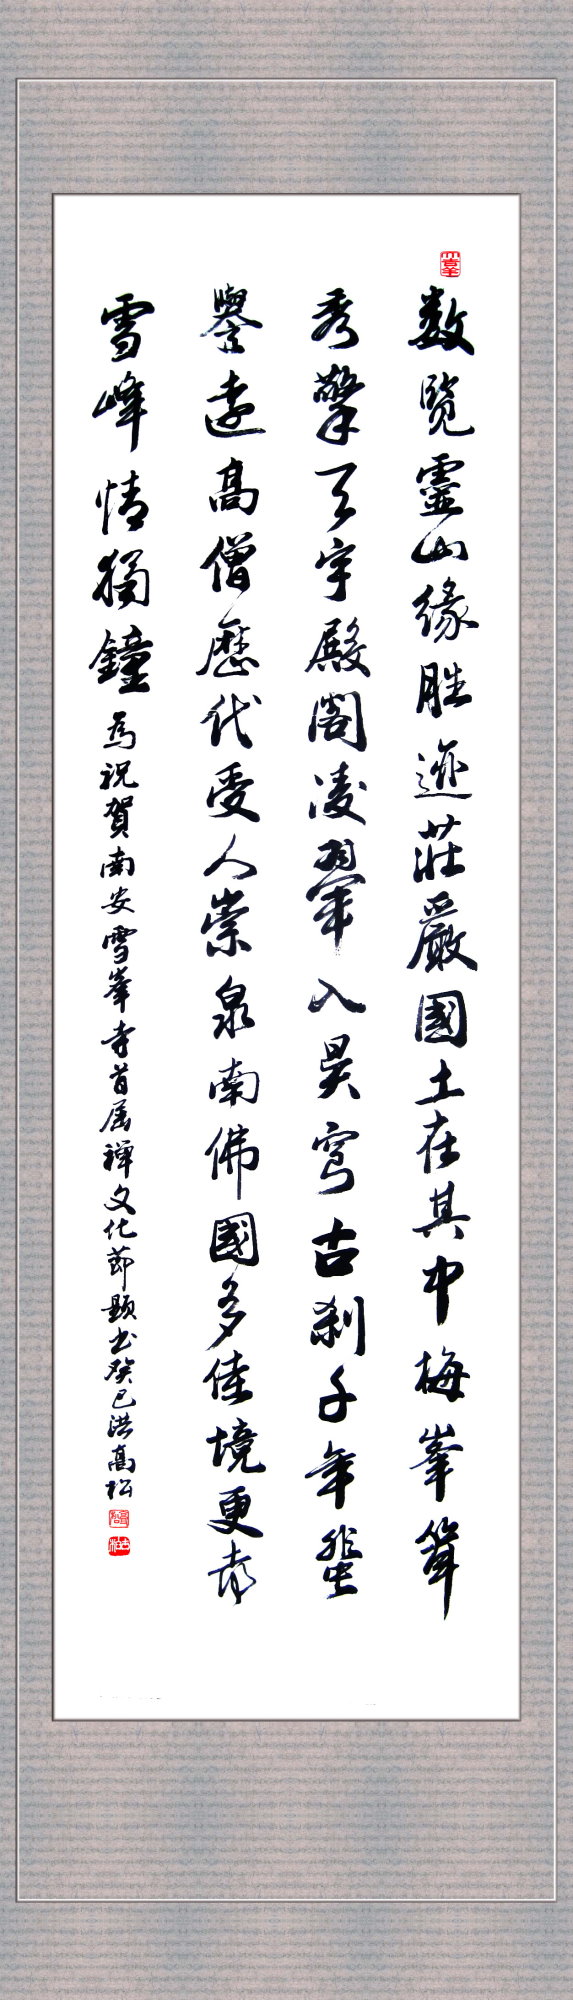 数覽靈山緣胜迹莊嚴國土在其中梅峯聳
秀擎天宇殿阁凌翠入昊穹古刹千年蜚
譽遠高僧歷代受人崇泉南佛國多佳境更喜
雪峰情獨鐘
為祝賀南安雪峯寺首届禅文化節题书癸巳洪高松